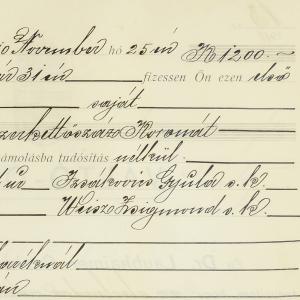 10 November hó 25én K 1200 –
ár 31én fizessen Ön ezen első
saját
zerkettőszáz Koronát
számolásba tudósítás nélkül.
Izsákovics Gyula s.k.
Weisz Zsigmond s.k.